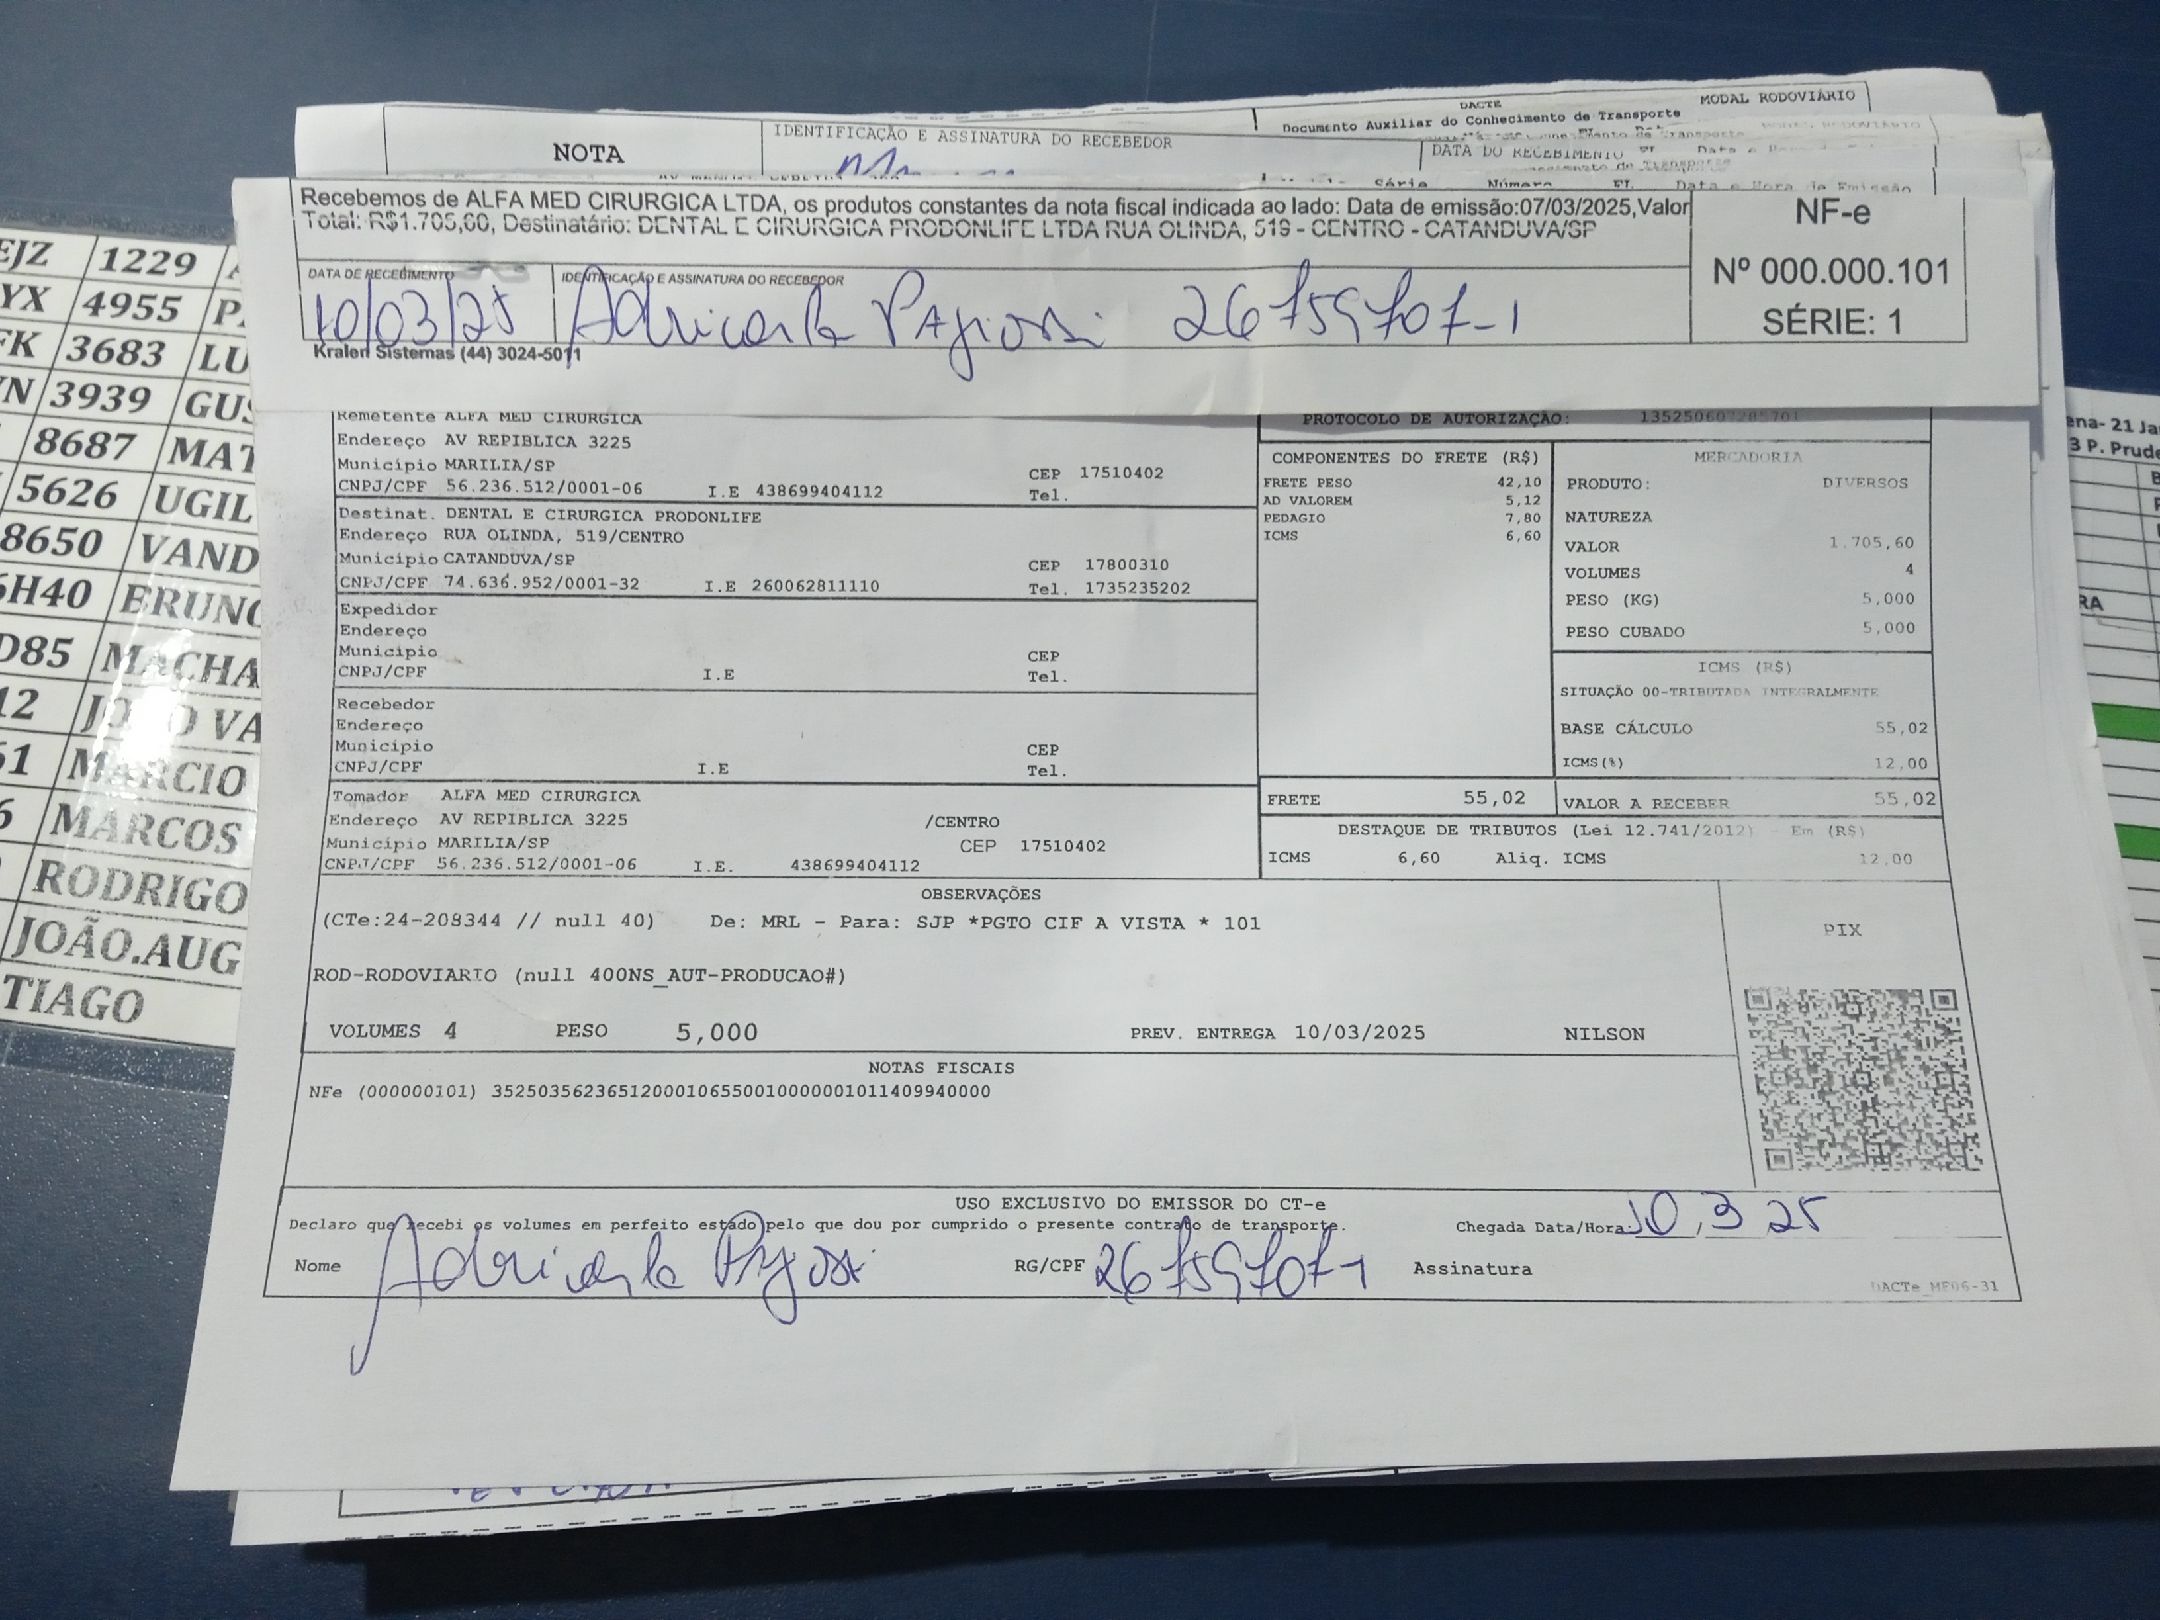 DACTE
MODAL RODOVIÁRIO
Documento Auxiliar do Conhecimento de Transporte
NOTA
IDENTIFICAÇÃO E ASSINATURA DO RECEBEDOR
DATA DO RECEBIMENTO
Série Número FL. Data e Hora de Emissão
Recebemos de ALFA MED CIRURGICA LTDA, os produtos constantes da nota fiscal indicada ao lado: Data de emissão:07/03/2025,Valor
Total: R$1.705,60, Destinatário: DENTAL E CIRURGICA PRODONLIFE LTDA RUA OLINDA, 519 - CENTRO - CATANDUVA/SP
NF-e
Nº 000.000.101
SÉRIE: 1
DATA DE RECEBIMENTO
10/03/25
IDENTIFICAÇÃO E ASSINATURA DO RECEBEDOR
26759707-1
Kralen Sistemas (44) 3024-5011
Remetente ALFA MED CIRURGICA
Endereço AV REPIBLICA 3225
Município MARILIA/SP CEP 17510402
CNPJ/CPF 56.236.512/0001-06 I.E 438699404112 Tel.
Destinat. DENTAL E CIRURGICA PRODONLIFE
Endereço RUA OLINDA, 519/CENTRO
Município CATANDUVA/SP CEP 17800310
CNPJ/CPF 74.636.952/0001-32 I.E 260062811110 Tel. 1735235202
Expedidor
Endereço
Município CEP
CNPJ/CPF I.E Tel.
Recebedor
Endereço
Município CEP
CNPJ/CPF I.E Tel.
Tomador ALFA MED CIRURGICA
Endereço AV REPIBLICA 3225 /CENTRO
Município MARILIA/SP CEP 17510402
CNPJ/CPF 56.236.512/0001-06 I.E. 438699404112
PROTOCOLO DE AUTORIZAÇÃO:
COMPONENTES DO FRETE (R$)
FRETE PESO 42,10
AD VALOREM 5,12
PEDAGIO 7,80
ICMS 6,60
MERCADORIA
PRODUTO: DIVERSOS
NATUREZA
VALOR 1.705,60
VOLUMES 4
PESO (KG) 5,000
PESO CUBADO 5,000
ICMS (R$)
SITUAÇÃO 00-TRIBUTADA INTEGRALMENTE
BASE CÁLCULO 55,02
ICMS(%) 12,00
FRETE 55,02
VALOR A RECEBER 55,02
DESTAQUE DE TRIBUTOS (Lei 12.741/2012) - Em (R$)
ICMS 6,60 Aliq. ICMS 12,00
OBSERVAÇÕES
(CTe:24-208344 // null 40) De: MRL - Para: SJP *PGTO CIF A VISTA * 101
ROD-RODOVIARIO (null 400NS_AUT-PRODUCAO#)
VOLUMES 4 PESO 5,000 PREV. ENTREGA 10/03/2025 NILSON
PIX
NOTAS FISCAIS
NFe (000000101) 35250356236512000106550010000001011409940000
USO EXCLUSIVO DO EMISSOR DO CT-e
Declaro que recebi os volumes em perfeito estado pelo que dou por cumprido o presente contrato de transporte.
Chegada Data/Hora: 10, 3 25
Nome
RG/CPF 26759707-1
Assinatura
DACTe_MF06-31
EJZ 1229
YX 4955
FK 3683 LU
3939 GUS
8687 MAT
5626 UGIL
8650 VAND
6H40 BRUNO
D85 MACHA
12 JOÃO VA
MARCIO
MARCOS
RODRIGO
JOÃO.AUG
TIAGO